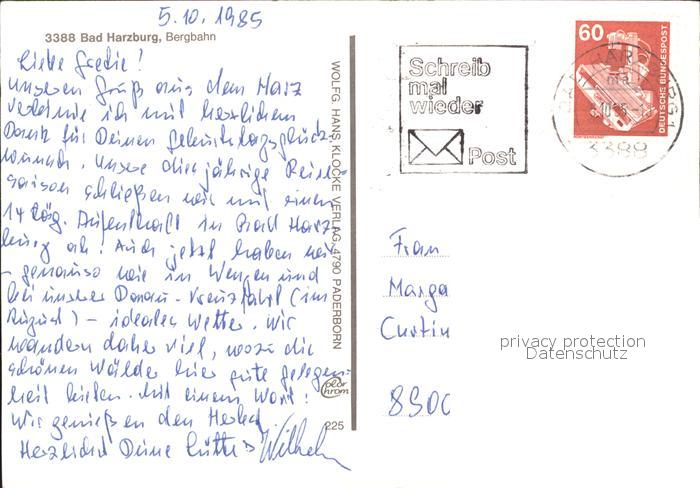 5.10.1985
3388 Bad Harzburg, Bergbahn
Liebe Gredie!
Unseren Gruß aus dem Harz
verbinde ich mit herzlichem
Dank für Deinen Geburtstagsglück-
wunsch. Unsere diesjährige Reise-
saison schließen wir mit einem
14 täg. Aufenthalt in Bad Harz-
burg ab! Auch jetzt haben wir
- genauso wie in Wengen und
bei unserer Donau-Kreuzfahrt (im
August) - ideales Wetter. Wir
wandern daher viel, wozu die
schönen Wälder hier gute Gelegen-
heit bieten. Mit einem Wort:
Wir genießen den Herbst.
Herzlichst Deine Wilhelm
WOLFG. HANS KLOCKE VERLAG, 4790 PADERBORN
color
chrom
225
Schreib
mal
wieder
Post
60
DEUTSCHE BUNDESPOST
3388
Frau
Marga
Curtin
privacy protection
Datenschutz
8900